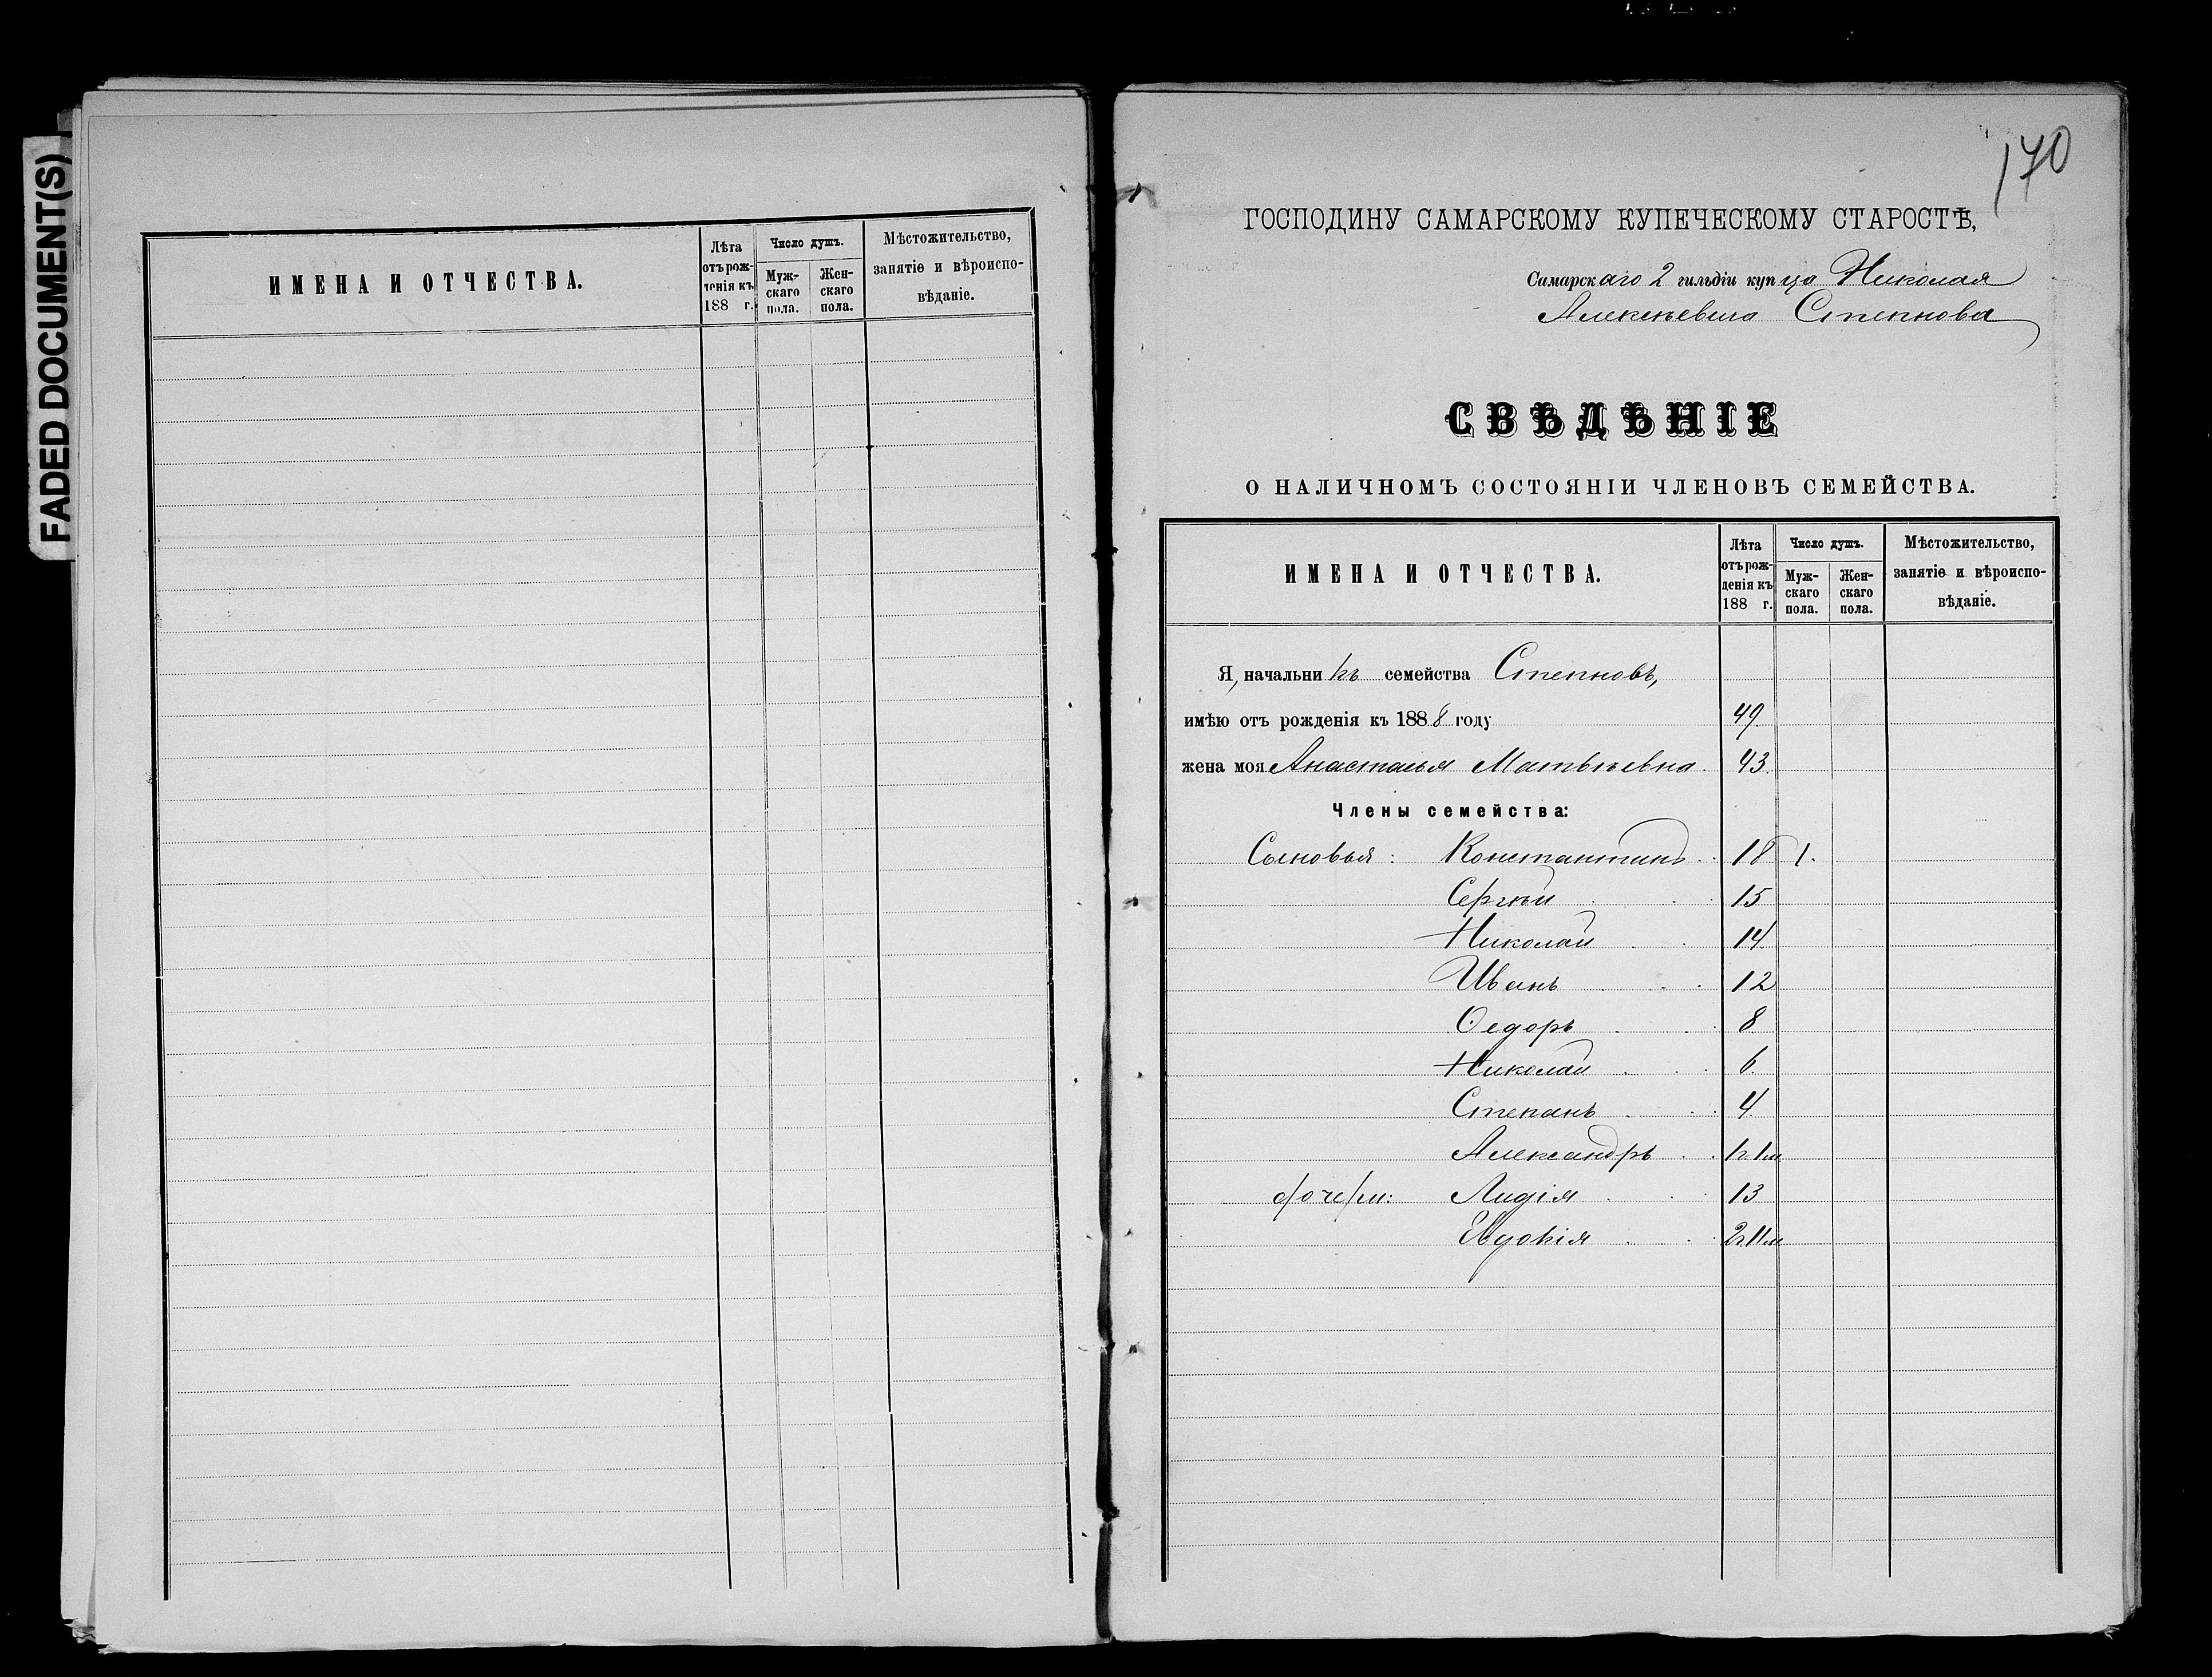 FADED DOCUMENT(S)
ИМЕНА И ОТЧЕСТВА.
Лѣта
отъ рож-
денія къ
188 г.
Число душъ.
Муж-
скаго
пола.
Жен-
скаго
пола.
Мѣстожительство,
занятіе и вѣроиспо-
вѣданіе.
170
ГОСПОДИНУ САМАРСКОМУ КУПЕЧЕСКОМУ СТАРОСТѢ,
Самарскаго 2 гильдіи купца Николая
Алексѣевича Степнова
СВѢДѢНІЕ
О НАЛИЧНОМЪ СОСТОЯНІИ ЧЛЕНОВЪ СЕМЕЙСТВА.
ИМЕНА И ОТЧЕСТВА.
Лѣта
отъ рож-
денія къ
188 г.
Число душъ.
Муж-
скаго
пола.
Жен-
скаго
пола.
Мѣстожительство,
занятіе и вѣроиспо-
вѣданіе.
Я, начальникъ семейства Степновъ,
имѣю отъ рожденія къ 1888 году 49
жена моя Анастасья Матвѣевна 43
Члены семейства:
Сыновья: Константинъ 18 1.
Сергѣй 15
Николай 14
Иванъ 12
Ѳедоръ 8
Николай 6
Степанъ 4
Александръ 1г.1м
дочери: Лидія 13
Евдокія 2г.11м